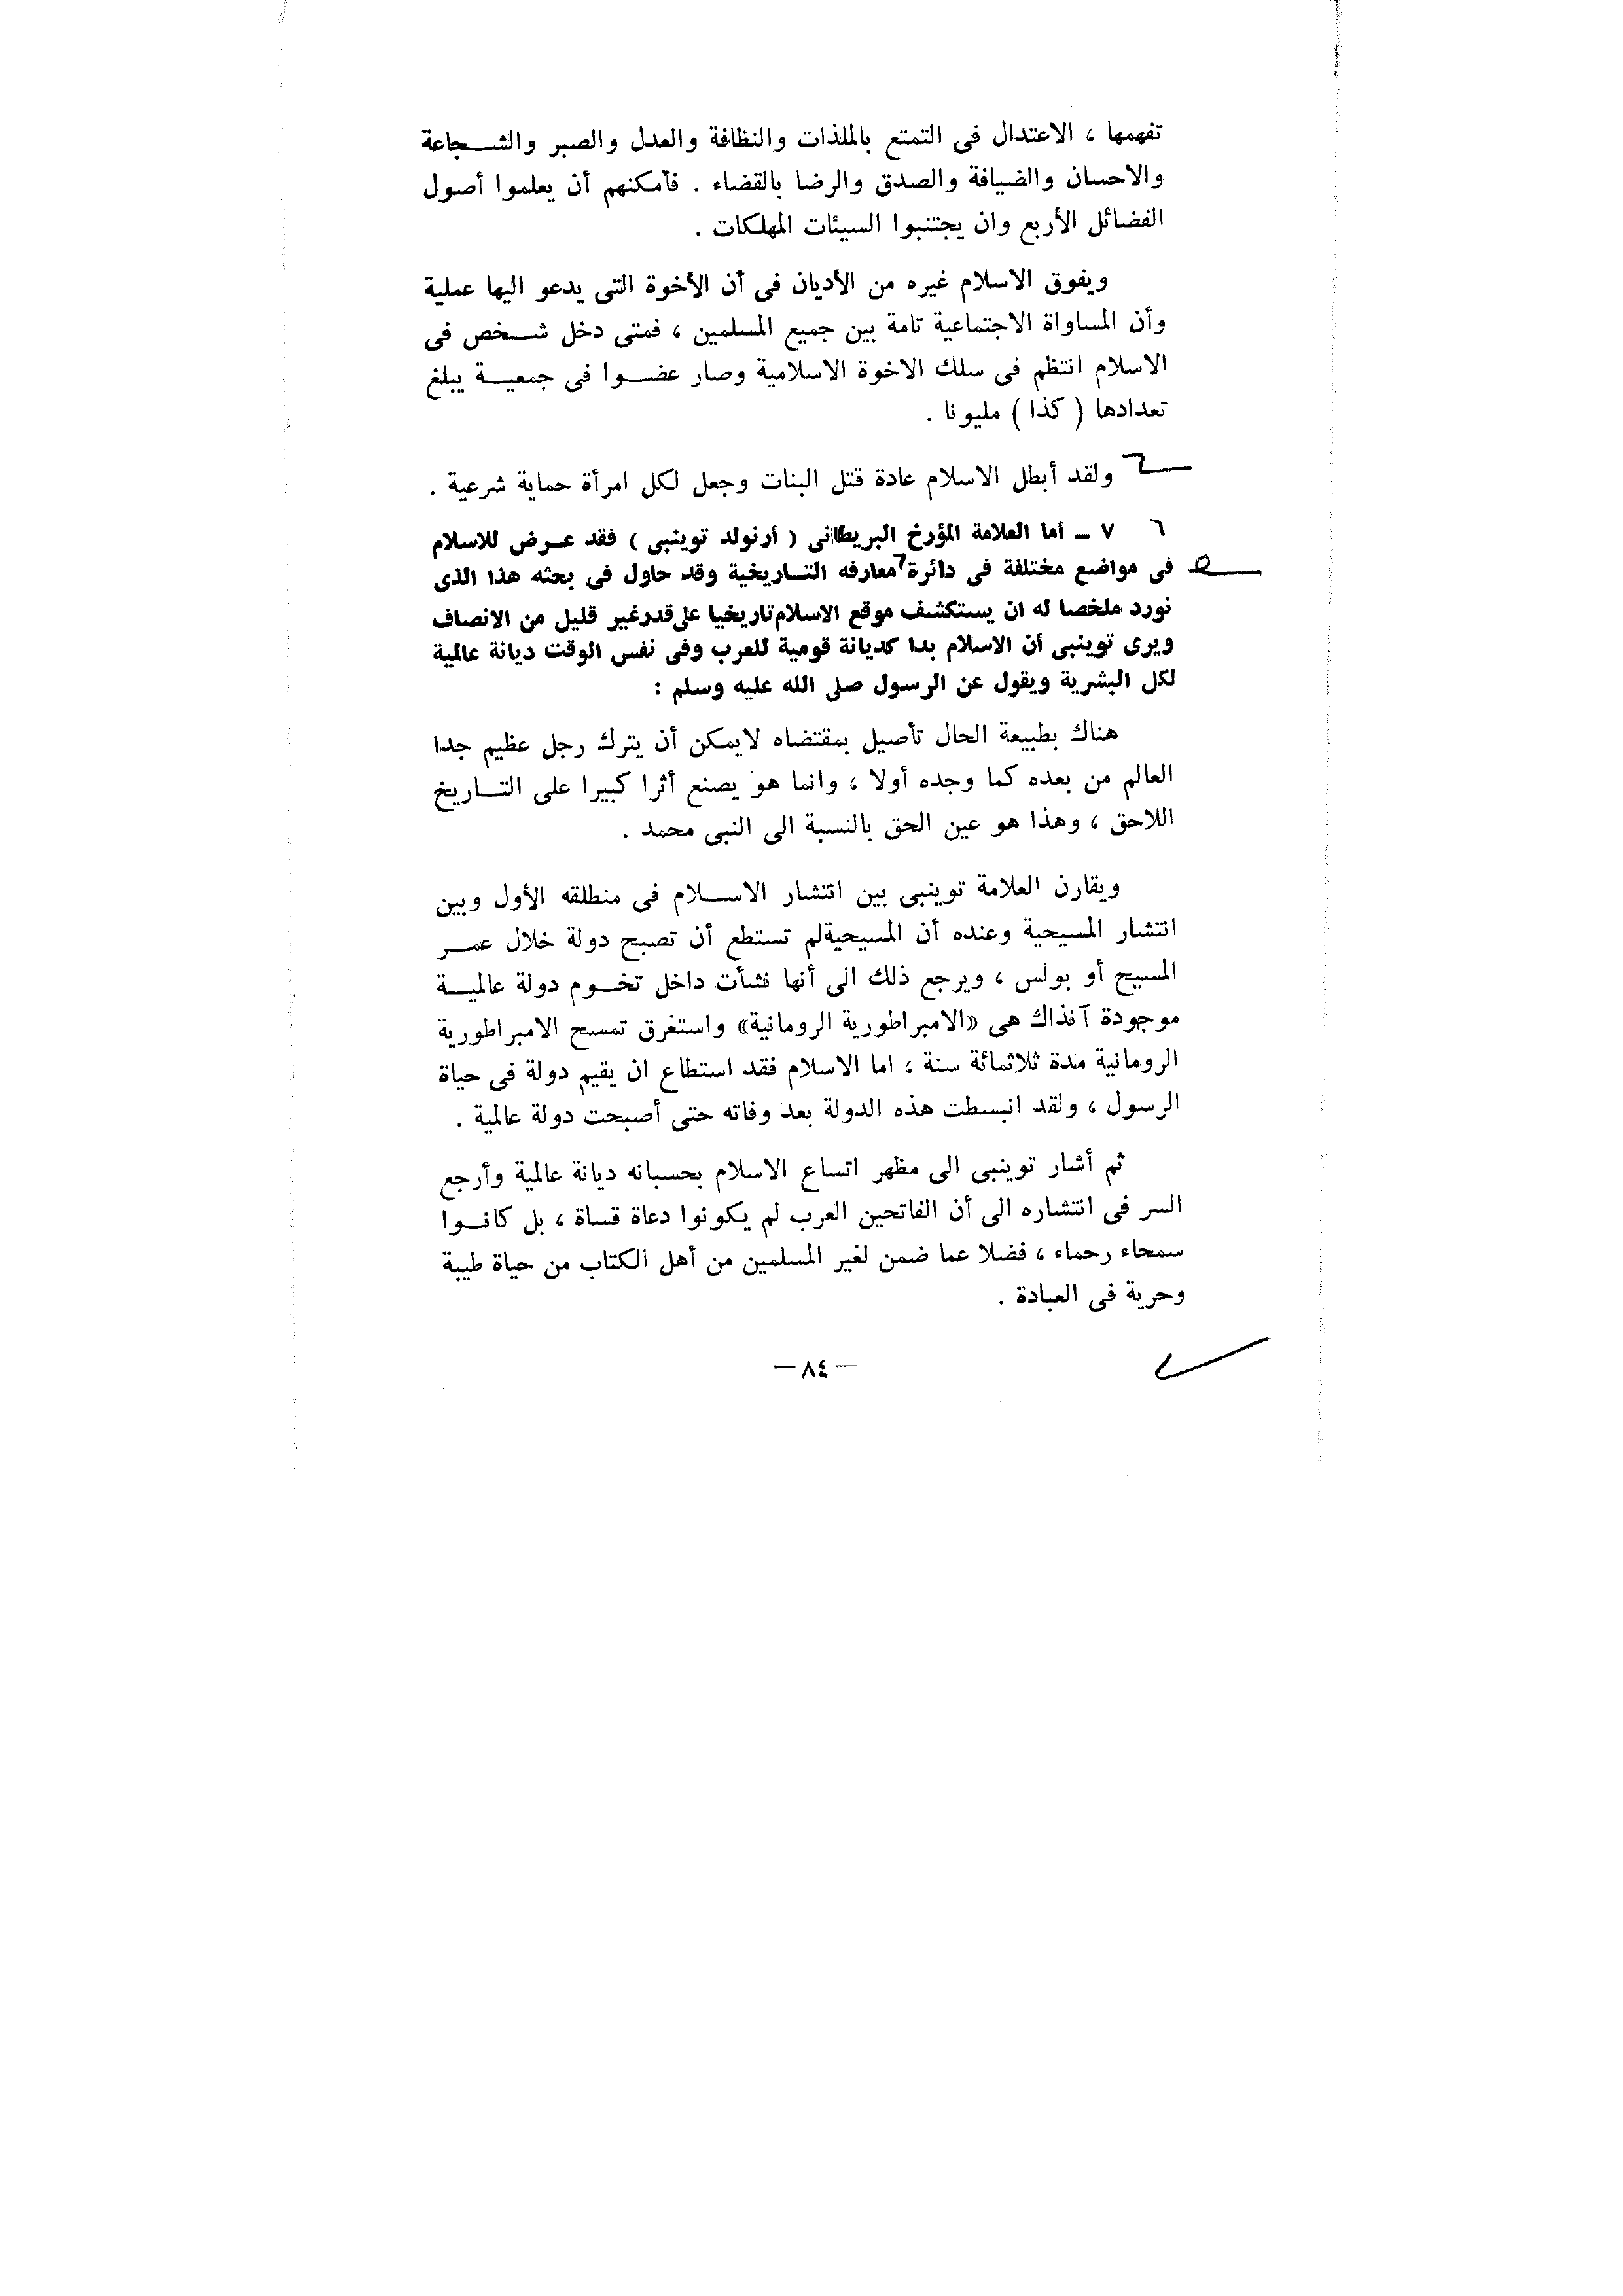 تفهمها ، الاعتدال فى التمتع بالملذات والنظافة والعدل والصبر والشـــجاعة
والاحسان والضيافة والصدق والرضا بالقضاء . فأمكنهم أن يعلموا أصول
الفضائل الأربع وان يجتنبوا السيئات المهلكات .
ويفوق الاسلام غيره من الأديان فى أن الأخوة التى يدعو اليها عملية
وأن المساواة الاجتماعية تامة بين جميع المسلمين ، فمتى دخل شـــخص فى
الاسلام انتظم فى سلك الاخوة الاسلامية وصار عضـــوا فى جمعيـــة يبلغ
تعدادها ( كذا ) مليونا .
ولقد أبطل الاسلام عادة قتل البنات وجعل لكل امرأة حماية شرعية .
٦ ٧ ــ أما العلامة المؤرخ البريطانى ( أرنولد توينبى ) فقد عـــرض للاسلام
فى مواضع مختلفة فى دائرة معارفه التـــاريخية وقد حاول فى بحثه هذا الذى
نورد ملخصا له ان يستكشف موقع الاسلام تاريخيا على قدر غير قليل من الانصاف
ويرى توينبى أن الاسلام بدا كديانة قومية للعرب وفى نفس الوقت ديانة عالمية
لكل البشرية ويقول عن الرسول صلى الله عليه وسلم :
هناك بطبيعة الحال تأصيل بمقتضاه لايمكن أن يترك رجل عظيم جدا
العالم من بعده كما وجده أولا ، وانما هو يصنع أثرا كبيرا على التـــاريخ
اللاحق ، وهذا هو عين الحق بالنسبة الى النبى محمد .
ويقارن العلامة توينبى بين انتشار الاســـلام فى منطلقه الأول وبين
انتشار المسيحية وعنده أن المسيحيةلم تستطع أن تصبح دولة خلال عمـــر
المسيح أو بولس ، ويرجع ذلك الى أنها نشأت داخل تخـــوم دولة عالميـــة
موجودة آنذاك هى «الامبراطورية الرومانية» واستغرق تمسح الامبراطورية
الرومانية مدة ثلاثمائة سنة ، اما الاسلام فقد استطاع ان يقيم دولة فى حياة
الرسول ، ولقد انبسطت هذه الدولة بعد وفاته حتى أصبحت دولة عالمية .
ثم أشار توينبى الى مظهر اتساع الاسلام بحسبانه ديانة عالمية وأرجع
السر فى انتشاره الى أن الفاتحين العرب لم يكونوا دعاة قساة ، بل كانـــوا
سمحاء رحماء ، فضلا عما ضمن لغير المسلمين من أهل الكتاب من حياة طيبة
وحرية فى العبادة .
— ٨٤ —